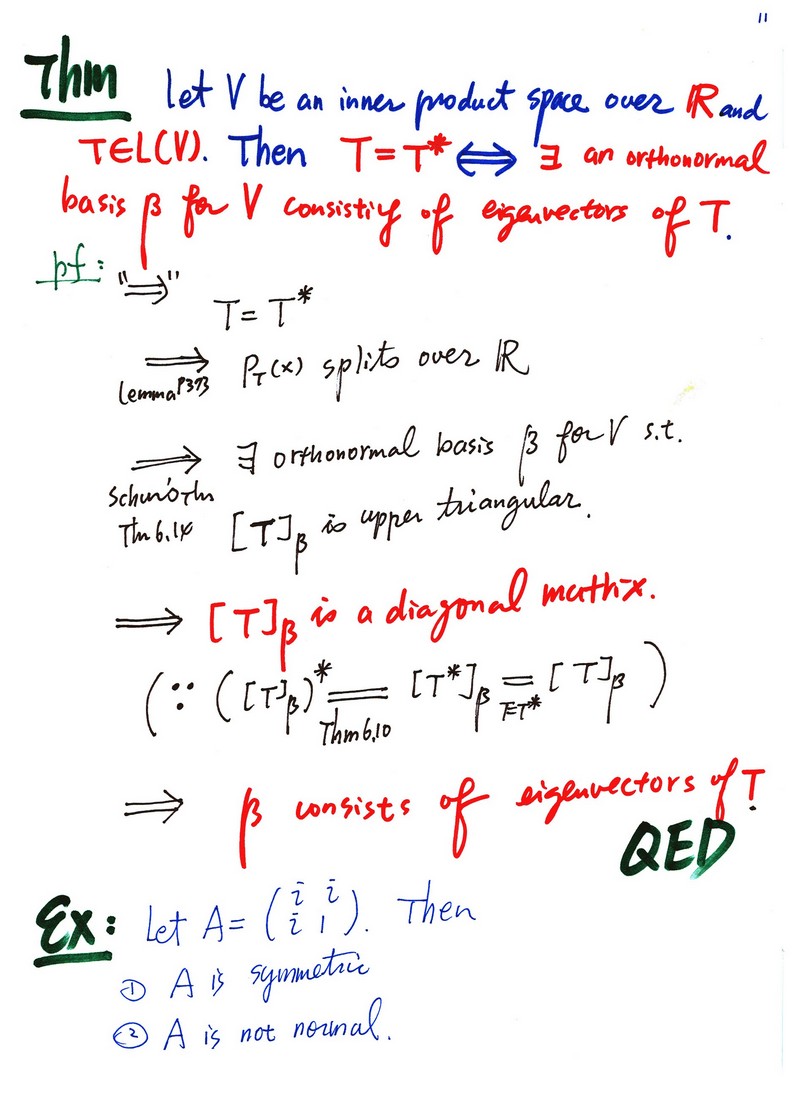 11
Thm Let V be an inner product space over ℝ and
T∈L(V). Then T=T* ⟺ ∃ an orthonormal
basis β for V consistiy of eigenvectors of T.
pf: "⟹"
T = T*
⟹ P_T(x) splits over ℝ
Lemma P373
⟹ ∃ orthonormal basis β for V s.t.
Schur's Thm
Thm 6.14 [T]_β is upper triangular.
⟹ [T]_β is a diagonal matrix.
(∵ ([T]_β)* = [T*]_β = [T]_β)
Thm 6.10 T=T*
⟹ β consists of eigenvectors of T.
QED
Ex: Let A = (i i
i 1). Then
① A is symmetric
② A is not normal.